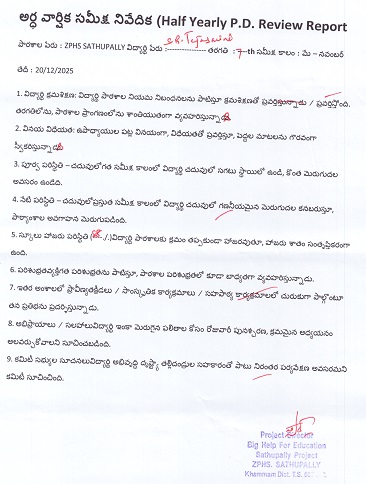 అర్ధ వార్షిక సమీక్ష నివేదిక (Half Yearly P.D. Review Report
పాఠశాల పేరు : ZPHS SATHUPALLY విద్యార్థి పేరు :-------------- తరగతి : 7-th సమీక్ష కాలం : మే – నవంబర్
తేదీ : 20/12/2025
1. విద్యార్థి క్రమశిక్షణ: విద్యార్థి పాఠశాల నియమ నిబంధనలను పాటిస్తూ క్రమశిక్షణతో ప్రవర్తిస్తున్నాడు / ప్రవర్తిస్తోంది.
తరగతిలోను, పాఠశాల ప్రాంగణంలోను శాంతియుతంగా వ్యవహరిస్తున్నాడు
2. వినయ విధేయత: ఉపాధ్యాయుల పట్ల వినయంగా, విధేయతతో ప్రవర్తిస్తూ, పెద్దల మాటలను గౌరవంగా
స్వీకరిస్తున్నాడు
3. పూర్వ పరిస్థితి – చదువులోగత సమీక్ష కాలంలో విద్యార్థి చదువులో సగటు స్థాయిలో ఉండి, కొంత మెరుగుదల
అవసరం ఉండేది.
4. నేటి పరిస్థితి – చదువులోప్రస్తుత సమీక్ష కాలంలో విద్యార్థి చదువులో గణనీయమైన మెరుగుదల కనబరుస్తూ,
పాఠ్యాంశాల అవగాహన మెరుగుపడింది.
5. స్కూలు హాజరు పరిస్థితి ( /.)విద్యార్థి పాఠశాలకు క్రమం తప్పకుండా హాజరవుతూ, హాజరు శాతం సంతృప్తికరంగా
ఉంది.
6. పరిశుభ్రతవ్యక్తిగత పరిశుభ్రతను పాటిస్తూ, పాఠశాల పరిశుభ్రతలో కూడా బాధ్యతగా వ్యవహరిస్తున్నాడు.
7. ఇతర అంశాలలో ప్రావీణ్యతక్రీడలు / సాంస్కృతిక కార్యక్రమాలు / సహపాఠ్య కార్యక్రమాలలో చురుకుగా పాల్గొంటూ
తన ప్రతిభను ప్రదర్శిస్తున్నాడు.
8. అభిప్రాయాలు / సలహాలువిద్యార్థి ఇంకా మెరుగైన ఫలితాల కోసం రోజువారీ పునశ్చరణ, క్రమమైన అధ్యయనం
అలవర్చుకోవాలని సూచించబడింది.
9. కమిటీ సభ్యుల సూచనలువిద్యార్థి అభివృద్ధి దృష్ట్యా తల్లిదండ్రుల సహకారంతో పాటు నిరంతర పర్యవేక్షణ అవసరమని
కమిటీ సూచించింది.
Project Director
Big Help For Education
Sathupally Project
ZPHS. SATHUPALLY
Khammam Dist. T.S.